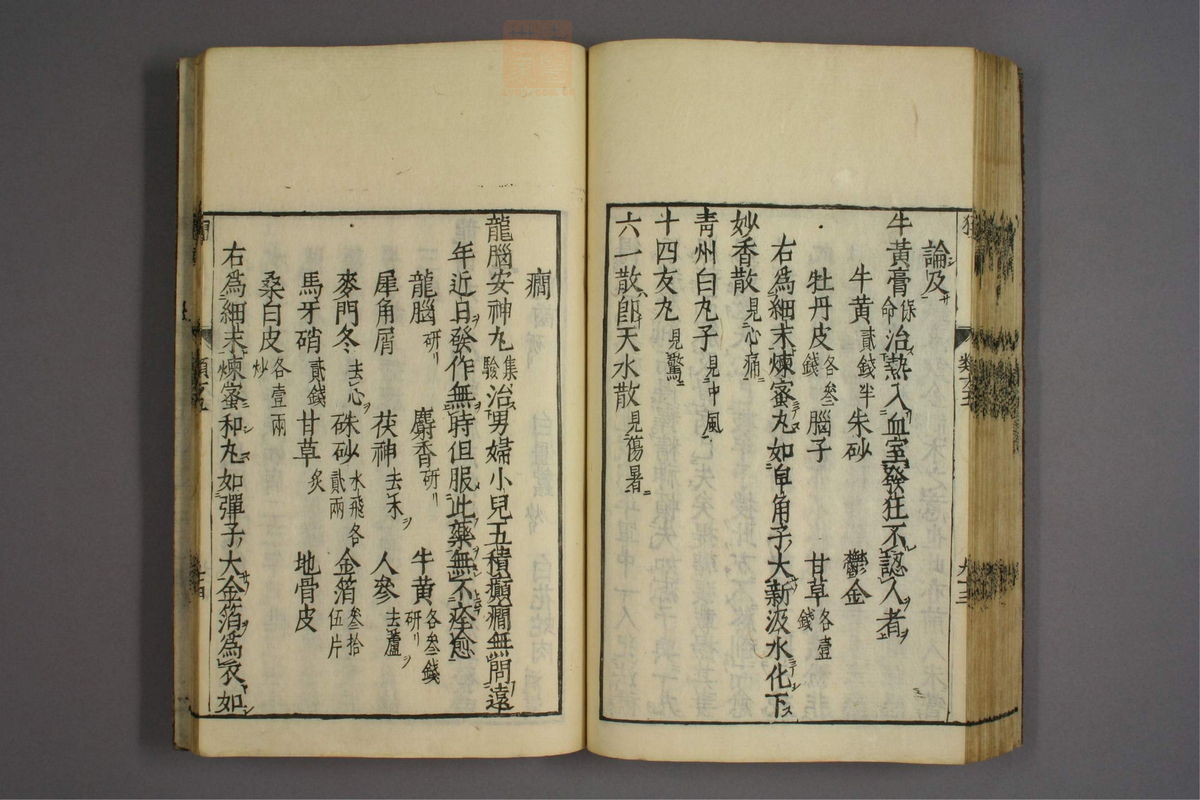 論及
牛黃膏保命治熱入血室發狂不認人者
牛黃貳錢半 朱砂 鬱金
牡丹皮各叁錢 腦子 甘草各壹錢
右爲細末煉蜜丸如皁角子大新汲水化下
妙香散見心痛
青州白丸子見中風
十四友丸見驚
六一散卽天水散見傷暑
癎
龍腦安神丸集驗治男婦小兒五積癲癎無問遠
年近日發作無時但服此藥無不痊愈
龍腦研 麝香研 牛黃各叁錢研
犀角屑 茯神去木 人參去蘆
麥門冬去心 硃砂水飛各貳兩 金箔叁拾伍片
馬牙硝貳錢 甘草炙 地骨皮
桑白皮各壹兩炒
右爲細末煉蜜和丸如彈子大金箔爲衣如